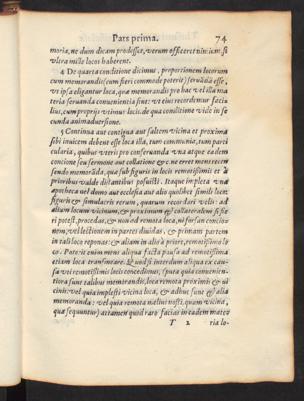 Pars prima. 74
moriæ, ne dum dicam prodesset, verum officeret nimium: si
vltra mille locos haberent.
4 De quarta conditione dicimus, proportionem locorum
cum memorandis (cum fieri commode poterit) seruãda esse,
vt ipsa eligantur loca, quæ memorandis pro hac vel illa ma
teria seruanda conuenientia sint: vt eius recordemur faciu
lius, cum proprijs vtimur locis. de qua conditione vide in se
cunda animaduersione.
5 Continua aut contigua aut saltem vicina et proxima
sibi inuicem debent esse loca illa, tum communia, tum parti
cularia, quibus vteris pro conseruanda vna atque eadem
concione seu sermone aut collatione &c. ne erret mens recen
sendo memorãda, quæ sub figuris in locis remotissimis et à
prioribus valde distantibus posuisti. Itaque impleta vna
apotheca vel domo aut ecclesia aut alio quolibet simili loco:
figuris & simulacris rerum, quarum recordari velis: ad
alium locum vicinum, & proximum & collateralem si fie
ri potest, procedas, & non ad remota loca, ni forsan concio
nem, vel lectionem in partes diuidas, & primam partem
in tali loco reponas: & aliam in alio à priore, remotissimo lo
co. Poterit enim mens aliqua facta pausa ad remotissima
etiam loca transmeare. Quod si interdum aliqua ex cau-
sa vti remotissimis locis concedimus, (puta quia conuenien-
tiora sunt talibus memorandis, loca remota proximis & vi
cinis: vel quia implesti vicina loca, & adhuc sunt & alia
memoranda: vel quia remota melius nosti, quam vicina,
quæ sequuntur) attamen quod raro facias in eadem mate-
T 2 ria lo-